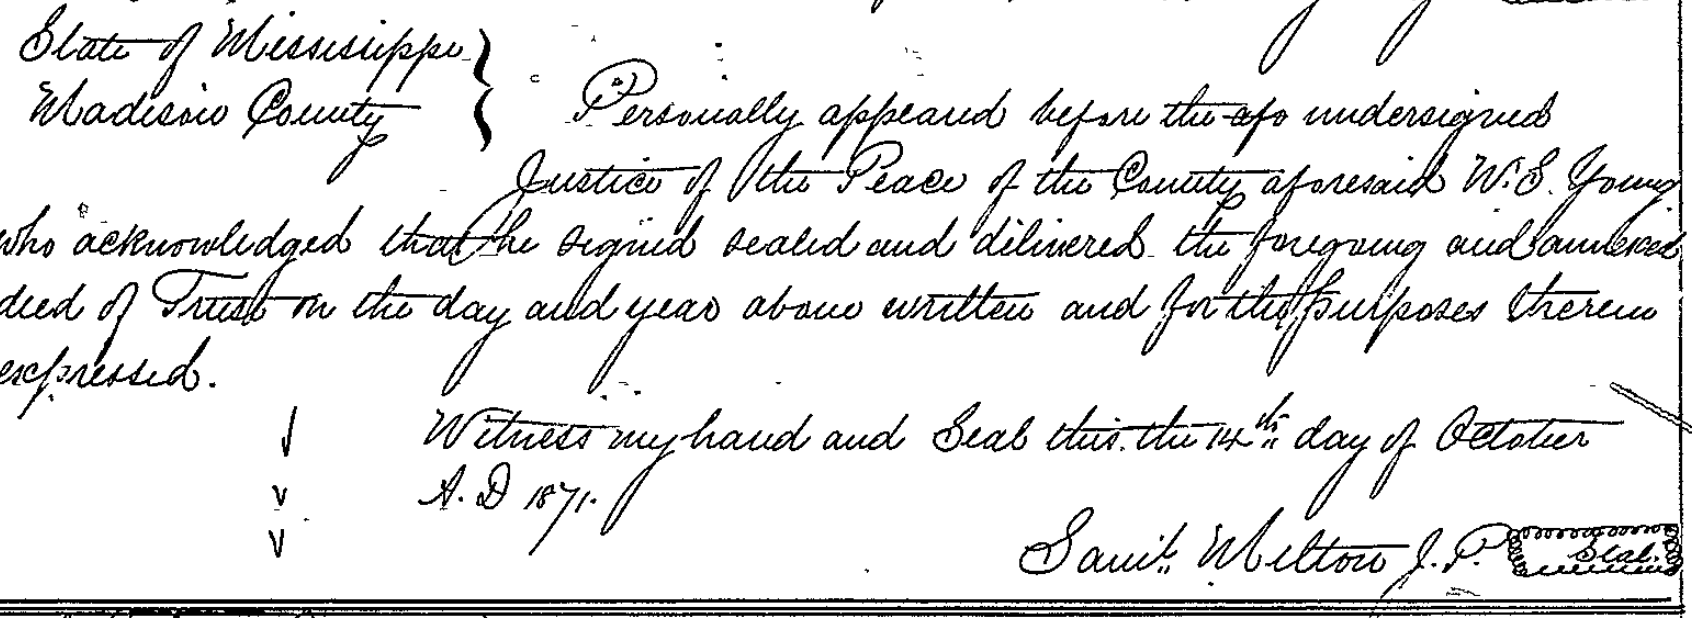 State of Mississippi }
Madison County } Personally appeared before the afo undersigned
Justice of the Peace of the County aforesaid W. S. Young
who acknowledged that he signed sealed and delivered the foregoing and annexed
deed of Trust on the day and year above written and for the purposes therein
expressed.
Witness my hand and Seal this the 14th day of October
A. D 1871.
Saml. Melton J. P. Seal.